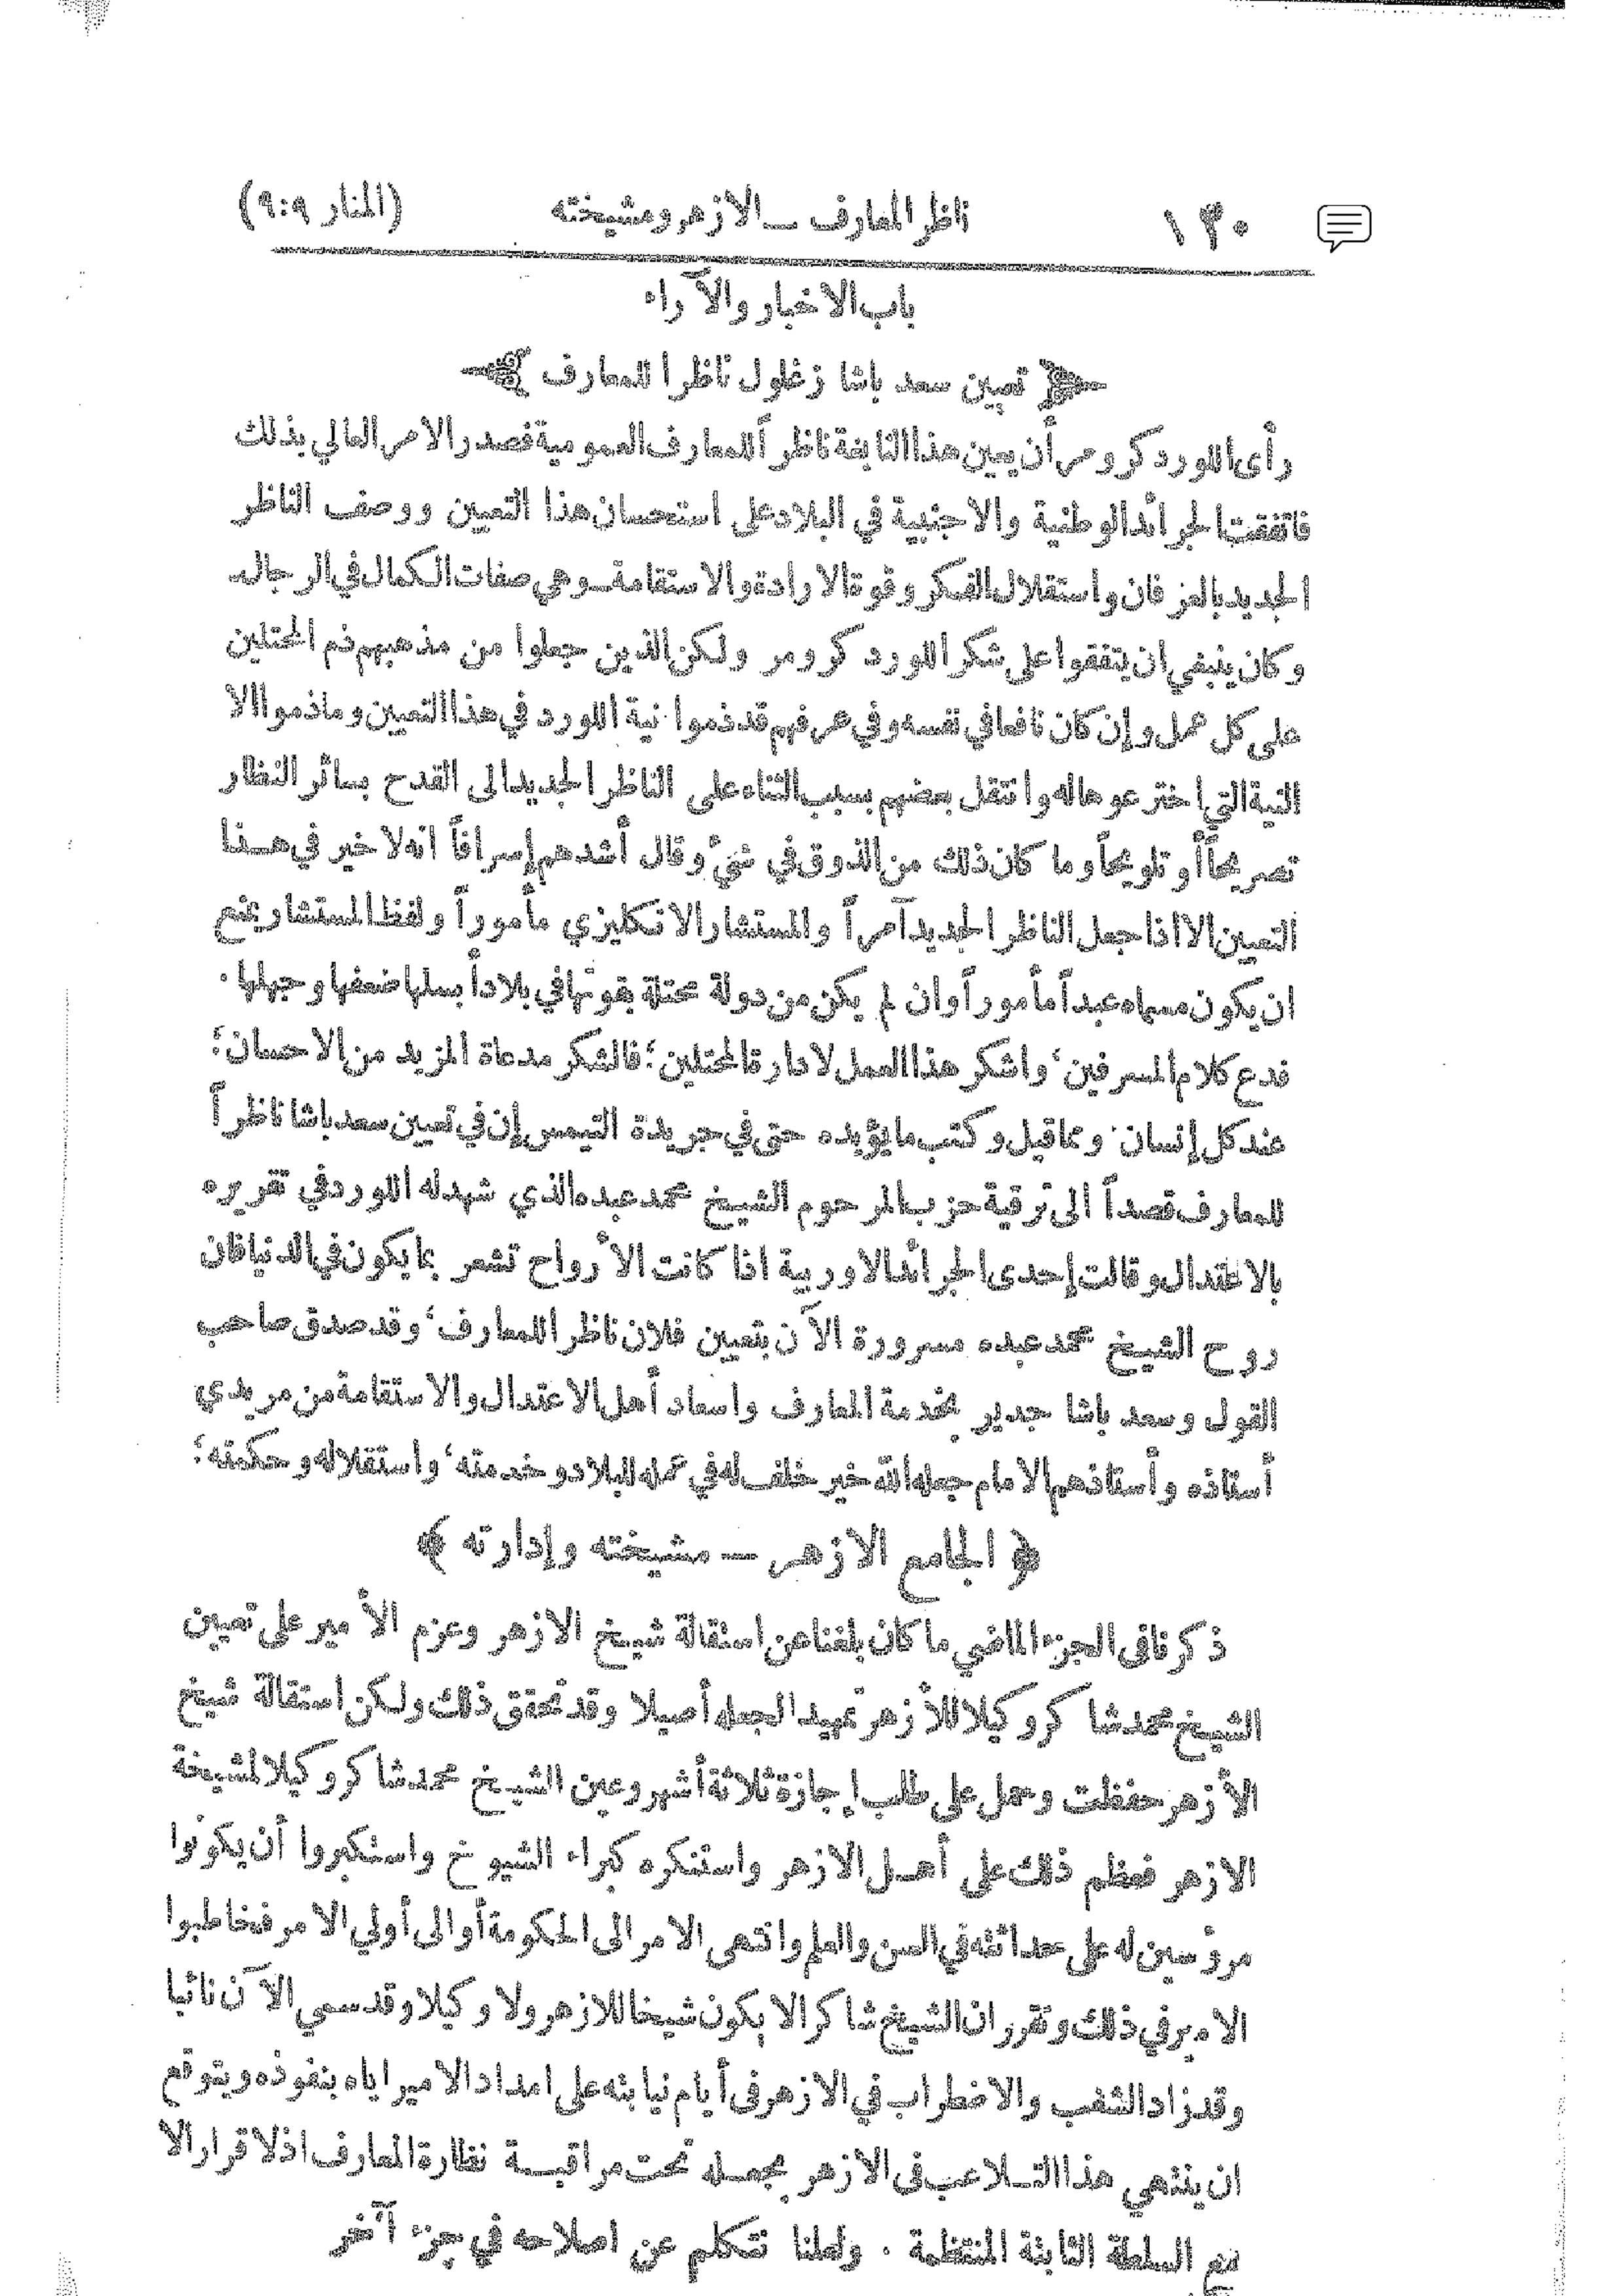 ١٣٠ ناظر المعارف ــ الازهر ومشيخته (المنار ٩:٩)
باب الاخبار والآراء
تعيين سعد باشا زغلول ناظراً للمعارف
رأى اللورد كرومر أن يعين هذا النابغة ناظراً للمعارف العمومية فصدر الامر العالي بذلك
فاتفقت الجرائد الوطنية والاجنبية في البلاد على استحسان هذا التعيين ووصف الناظر
الجديد بالعرفان واستقلال الفكر وقوة الارادة والاستقامة ــ وهي صفات الكمال في الرجال ــ
وكان ينبغي ان يتفقوا على شكر اللورد كرومر ولكن الذين جعلوا من مذهبهم ذم المحتلين
على كل عمل وإن كان نافعا في نفسه وفي عرفهم قد ذموا نية اللورد في هذا التعيين وما ذموا الا
النية التي اخترعوها له وانتقل بعضهم بسبب الثناء على الناظر الجديد الى القدح بسائر النظار
تصريحاً أو تلويحاً وما كان ذلك من الذوق في شيء وقال أشدهم إسرافاً انه لا خير في هـذا
التعيين الا اذا جعل الناظر الجديد آمراً والمستشار الانكليزي مأموراً ولفظ المستشار يمنع
ان يكون مسماه عبداً مأموراً وان لم يكن من دولة محتلة بقوتها في بلاد أبسلها ضعفها وجهلها .
فدع كلام المسرفين، واشكر هذا العمل لادارة المحتلين؛ فالشكر مدعاة المزيد من الاحسان؛
عند كل إنسان. ومما قيل وكتب ما يؤيده حتى في جريدة التيمس إن في تعيين سعد باشا ناظراً
للمعارف قصداً الى ترقية حزب المرحوم الشيخ محمد عبده الذي شهد له اللورد في تقريره
بالاعتدال وقالت إحدى الجرائد الاوربية اذا كانت الأرواح تشعر بما يكون في الدنيا فان
روح الشيخ محمد عبده مسرورة الآن بتعيين فلان ناظرا للمعارف، وقد صدق صاحب
القول وسعد باشا جدير بخدمة المعارف واسعاد أهل الاعتدال والاستقامة من مريدي
أستاذه وأستاذهم الامام جعله الله خير خلف له في عمله للبلاد وخدمته، واستقلاله وحكمته؛
﴿ الجامع الازهر — مشيخته وإدارته ﴾
ذكرنا في الجزء الماضي ما كان بلغنا عن استقالة شيخ الازهر وعزم الأمير على تعيين
الشيخ محمد شاكر وكيلا للأزهر تمهيدا لجعله أصيلا وقد تحقق ذلك ولكن استقالة شيخ
الأزهر حفظت وحمل على طلب إجازة ثلاثة أشهر وعين الشيخ محمد شاكر وكيلا لمشيخة
الازهر فعظم ذلك على أهـل الازهر واستنكره كبراء الشيوخ واستكبروا أن يكونوا
مرؤسين له على حداثته في السن والعلم وانتهى الامر الى الحكومة أو الى أولي الامر فخاطبوا
الامير في ذلك وتقرر ان الشيخ شاكر الا يكون شيخا للازهر ولا وكيلا وقد سمي الآن نائبا
وقد زاد الشغب والاضطراب في الازهر في أيام نيابته على امداد الامير اياه بنفوذه ويتوقع
ان ينتهي هذا التـلاعب في الازهر بجعـله تحت مراقبـة نظارة المعارف اذ لا قرار الا
مع السلطة الثابتة المنتظمة . ولعلنا نتكلم عن اصلاحه في جزء آخر